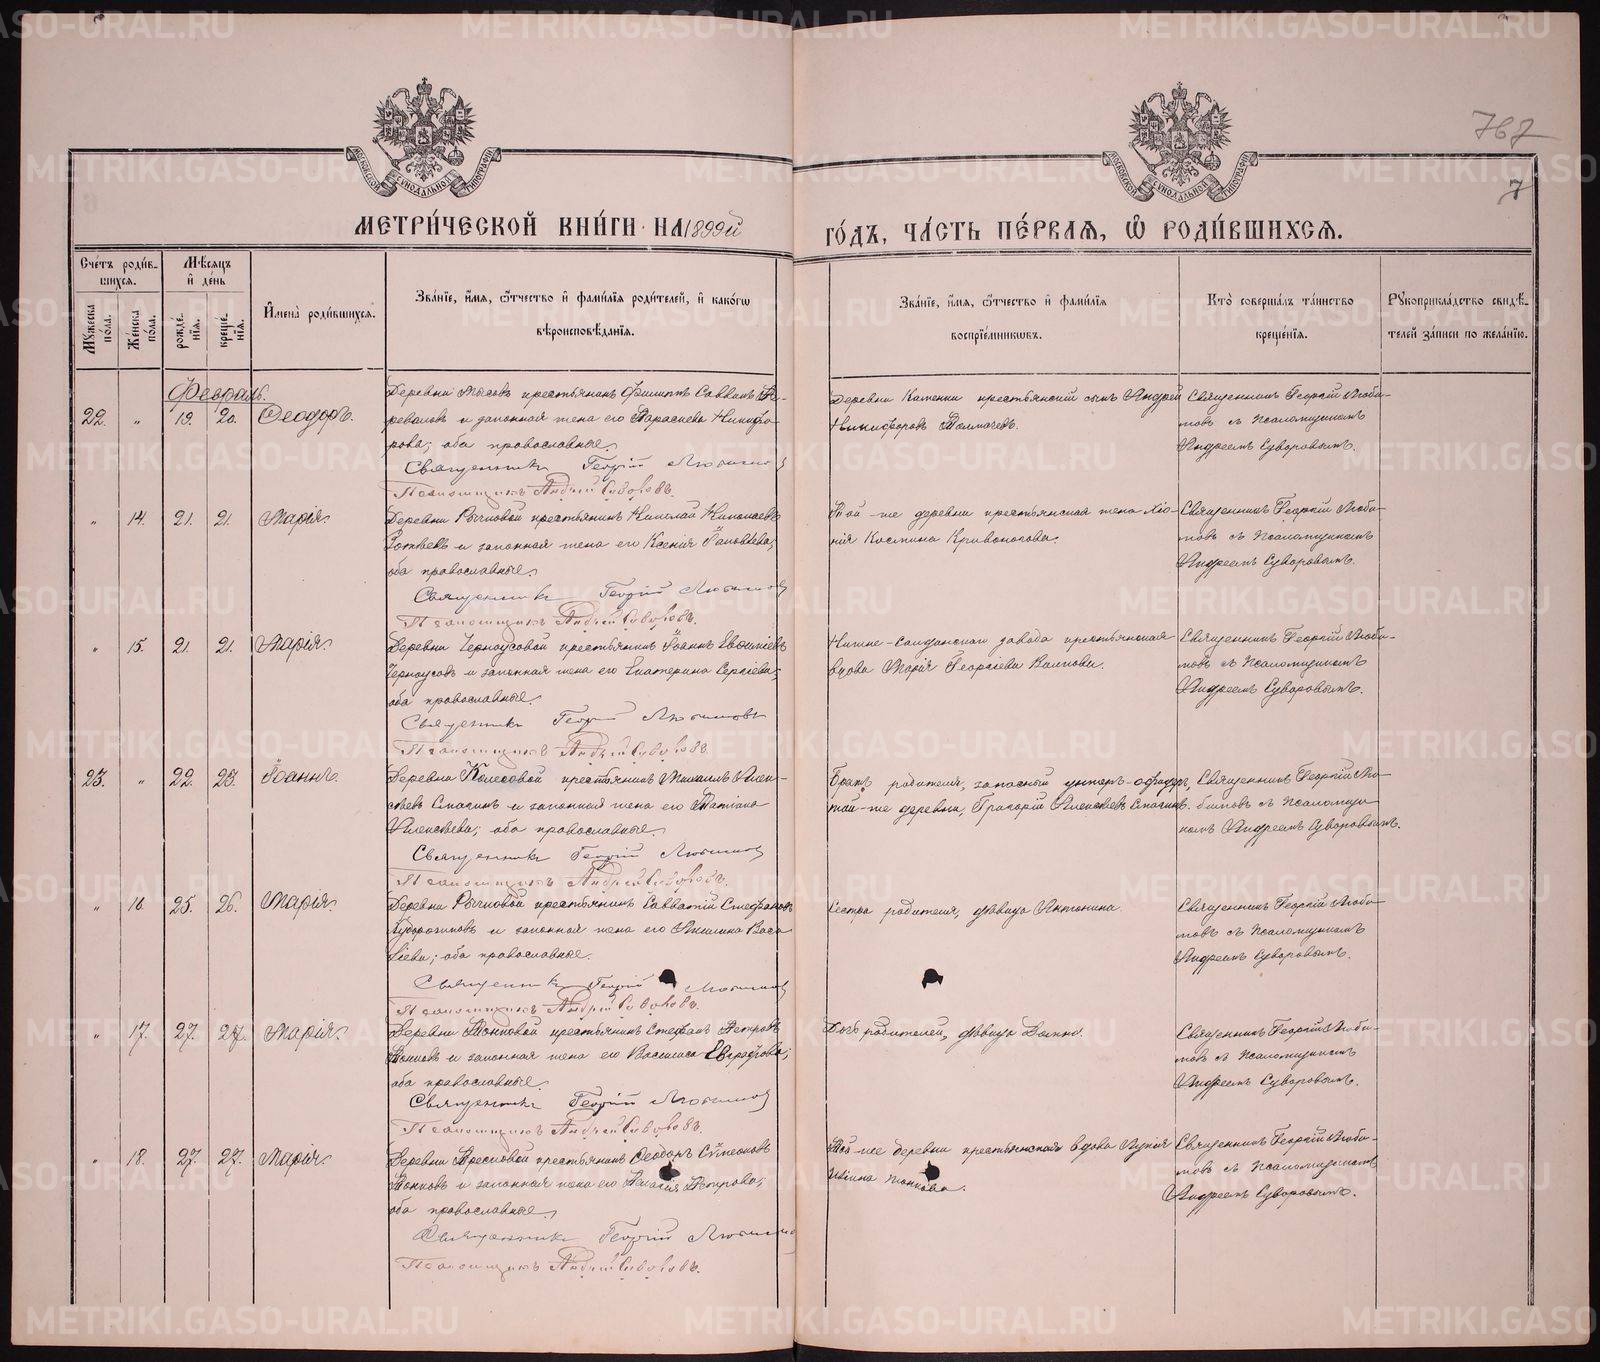 767
7
МОСКОВСКОЙ СѴНОДАЛЬНОЙ ТИПОГРАФІИ
МОСКОВСКОЙ СѴНОДАЛЬНОЙ ТИПОГРАФІИ
МЕТРИ́ЧЕСКОЙ КНИ́ГИ НА 1899й
ГО́ДЪ, ЧА́СТЬ ПЕ́РВАЯ, Ѡ҆ РОДИ́ВШИХСЯ.
Сче́тъ роди́в-
шихся.
Мѣ́сяцъ
и҆ де́нь
Мꙋ́жеска по́ла.
Же́нска по́ла.
рожде́-
нїя.
креще́-
нїя.
И҆мена̀ роди́вшихся.
Зва́нїе, и҆́мя, ѻ҆́тчество и҆ фами́лїя роди́телей, и҆ како́гѡ
вѣроисповѣ́данїя.
Зва́нїе, и҆́мя, ѻ҆́тчество и҆ фами́лїя
воспрїе́мникѡвъ.
Кто̀ соверша́лъ та́инство
креще́нїя.
Рꙋкоприкла́дство свидѣ́-
телей за́писи по жела́нїю.
Февраль.
22. " 19. 20. Ѳеодоръ.
Деревни крестьянинъ Филиппъ Саввинъ
и законная жена его Параскева Никифо-
рова; оба православные.
Священникъ Георгій Любимовъ
Псаломщикъ Андрей Суворовъ.
Деревни Каменки крестьянскій сынъ Андрей
Никифоровъ Толмачевъ.
Священникъ Георгій Люби-
мовъ съ Псаломщикомъ
Андреемъ Суворовымъ.
" 14. 21. 21. Марія.
Деревни Рычковой крестьянинъ Николай Николаевъ
и законная жена его Ксенія Іаковлева;
оба православные.
Священникъ Георгій Любимовъ
Псаломщикъ Андрей Суворовъ.
Той-же деревни крестьянская жена Хіо-
нія Космина Кривоногова.
Священникъ Георгій Люби-
мовъ съ Псаломщикомъ
Андреемъ Суворовымъ.
" 15. 21. 21. Марія.
Деревни Черноусовой крестьянинъ Іоаннъ Евѳиміевъ
Черноусовъ и законная жена его Екатерина Сергіева;
оба православные.
Священникъ Георгій Любимовъ
Псаломщикъ Андрей Суворовъ.
Нижне-Салдинскаго завода крестьянская
вдова Марія Георгіева
Священникъ Георгій Люби-
мовъ съ Псаломщикомъ
Андреемъ Суворовымъ.
23. " 22. 23. Іоаннъ.
Деревни Колесовой крестьянинъ Михаилъ Алек-
сѣевъ Спасинъ и законная жена его Татіана
Алексѣева; оба православные.
Священникъ Георгій Любимовъ
Псаломщикъ Андрей Суворовъ.
Братъ родителя, запасный унтеръ-офицеръ,
той-же деревни, Григорій Алексѣевъ Спасинъ.
Священникъ Георгій Лю-
бимовъ съ Псаломщи-
комъ Андреемъ Суворовымъ.
" 16. 25. 26. Марія.
Деревни Рычковой крестьянинъ Савватій Стефановъ
и законная жена его Акилина Васи-
ліева; оба православные.
Священникъ Георгій Любимовъ
Псаломщикъ Андрей Суворовъ.
Сестра родителя, дѣвица Антонина.
Священникъ Георгій Люби-
мовъ съ Псаломщикомъ
Андреемъ Суворовымъ.
" 17. 27. 27. Марія.
Деревни Токовой крестьянинъ Стефанъ Петровъ
и законная жена его Василиса Евграфова;
оба православные.
Священникъ Георгій Любимовъ
Псаломщикъ Андрей Суворовъ.
Дочь родителей, дѣвица
Священникъ Георгій Люби-
мовъ съ Псаломщикомъ
Андреемъ Суворовымъ.
" 18. 27. 27. Марія.
Деревни крестьянинъ Ѳеодоръ Сѵмеоновъ
и законная жена его Пелагія Петрова;
оба православные.
Священникъ Георгій Любимовъ
Псаломщикъ Андрей Суворовъ.
Той-же деревни крестьянская вдова Лукія
Священникъ Георгій Люби-
мовъ съ Псаломщикомъ
Андреемъ Суворовымъ.
METRIKI.GASO-URAL.RU